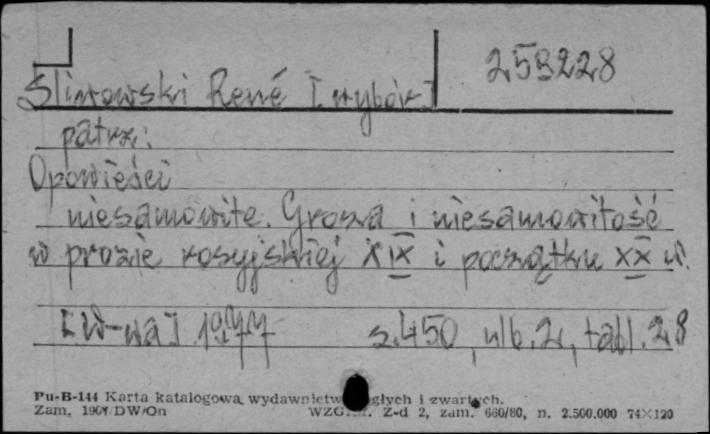 259228
Śliwowski René [wybór]
patrz:
Opowieści
niesamowite. Groza i niesamowitość
w prozie rosyjskiej XIX i początku XX w.
[W-wa] 1977 s. 450, nlb. 2, tabl. 28
Pu-B-144 Karta katalogowa wydawnictw ągłych i zwartych.
Zam, DW/On WZG Z-d 2, zam. 660/80, n. 2.500.000 74×120